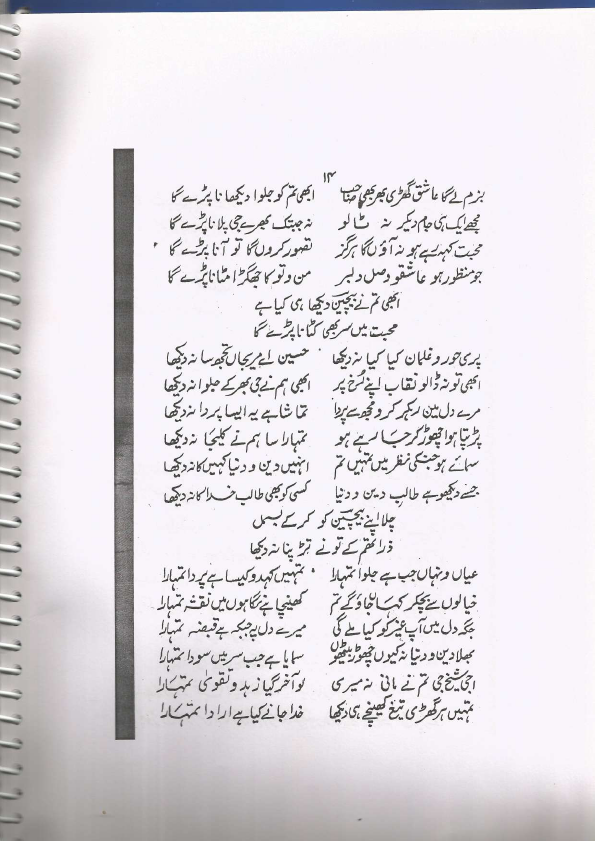 ۱۴
بزم لے گا عاشق گھڑی بھر بھی صاحب ابھی تم کو جلوا دیکھانا پڑے گا
مجھے ایک ہی جام دیکر نہ ٹالو نہ جبتک بھرے جی پلانا پڑے گا
محبت کہہ رہے ہو نہ آؤں گا ہرگز تصور کروں گا تو آنا پڑے گا
جو منظور ہو عاشقو وصل دلبر من و تو کا جھگڑا مٹانا پڑے گا
ابھی تم نے بیچین دیکھا ہی کیا ہے
محبت میں سر بھی کٹانا پڑے گا
پری حور و غلمان کیا کیا نہ دیکھا حسین اے مریجاں تجھ سا نہ دیکھا
ابھی تو نہ ڈالو نقاب اپنے رُخ پر ابھی ہم نے جی بھر کے جلوا نہ دیکھا
مرے دل مین رہکر کرو مجھ سے پردا تماشا ہے یہ ایسا پردا نہ دیکھا
تڑپتا ہوا چھوڑ کر جا رہے ہو تمہارا سا ہم نے کلیجا نہ دیکھا
سمائے ہو جنکی نظر میں تمہیں تم انہیں دین و دنیا کہیں کا نہ دیکھا
جسے دیکھو ہے طالب دین و دنیا کسی کو بھی طالب خدا کا نہ دیکھا
چلا اپنے بیچین کو کر کے بسمل
ذرا تھم کے تو نے تڑپنا نہ دیکھا
عیاں و نہاں جب ہے جلوا تمہارا تمہیں کہدو کیسا ہے پردا تمہارا
خیالوں سے بچکر کہاں جاؤ گے تم کھینچا ہے نگاہوں میں نقشہ تمہارا
جگہ دل میں آپ غیر کو کیا ملے گی میرے دل پہ جبکہ ہے قبضہ تمہارا
بھلا دین و دنیا نہ کیوں چھوڑ بیٹھوں سمایا ہے جب سر میں سودا تمہارا
اجی شیخ جی تم نے مانی نہ میری لو آخر گیا زہد و تقویٰ تمہارا
تمہیں ہر گھڑی تیغ کھینچے ہی دیکھا خدا جانے کیا ہے ارادا تمہارا